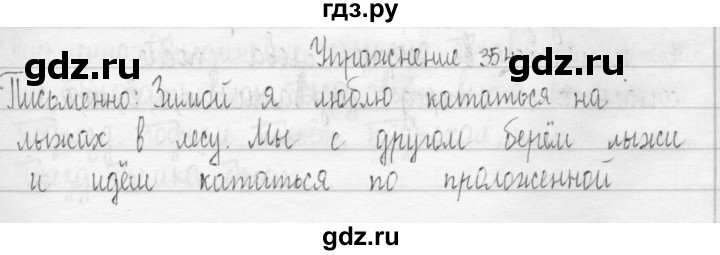 гдз.ру
Упражнение 354
gdz.ru gdz.ru
Письменно: Зимой я люблю кататься на
лыжах в лесу. Мы с другом берём лыжи
и идём кататься по проложенной
gdz.ru